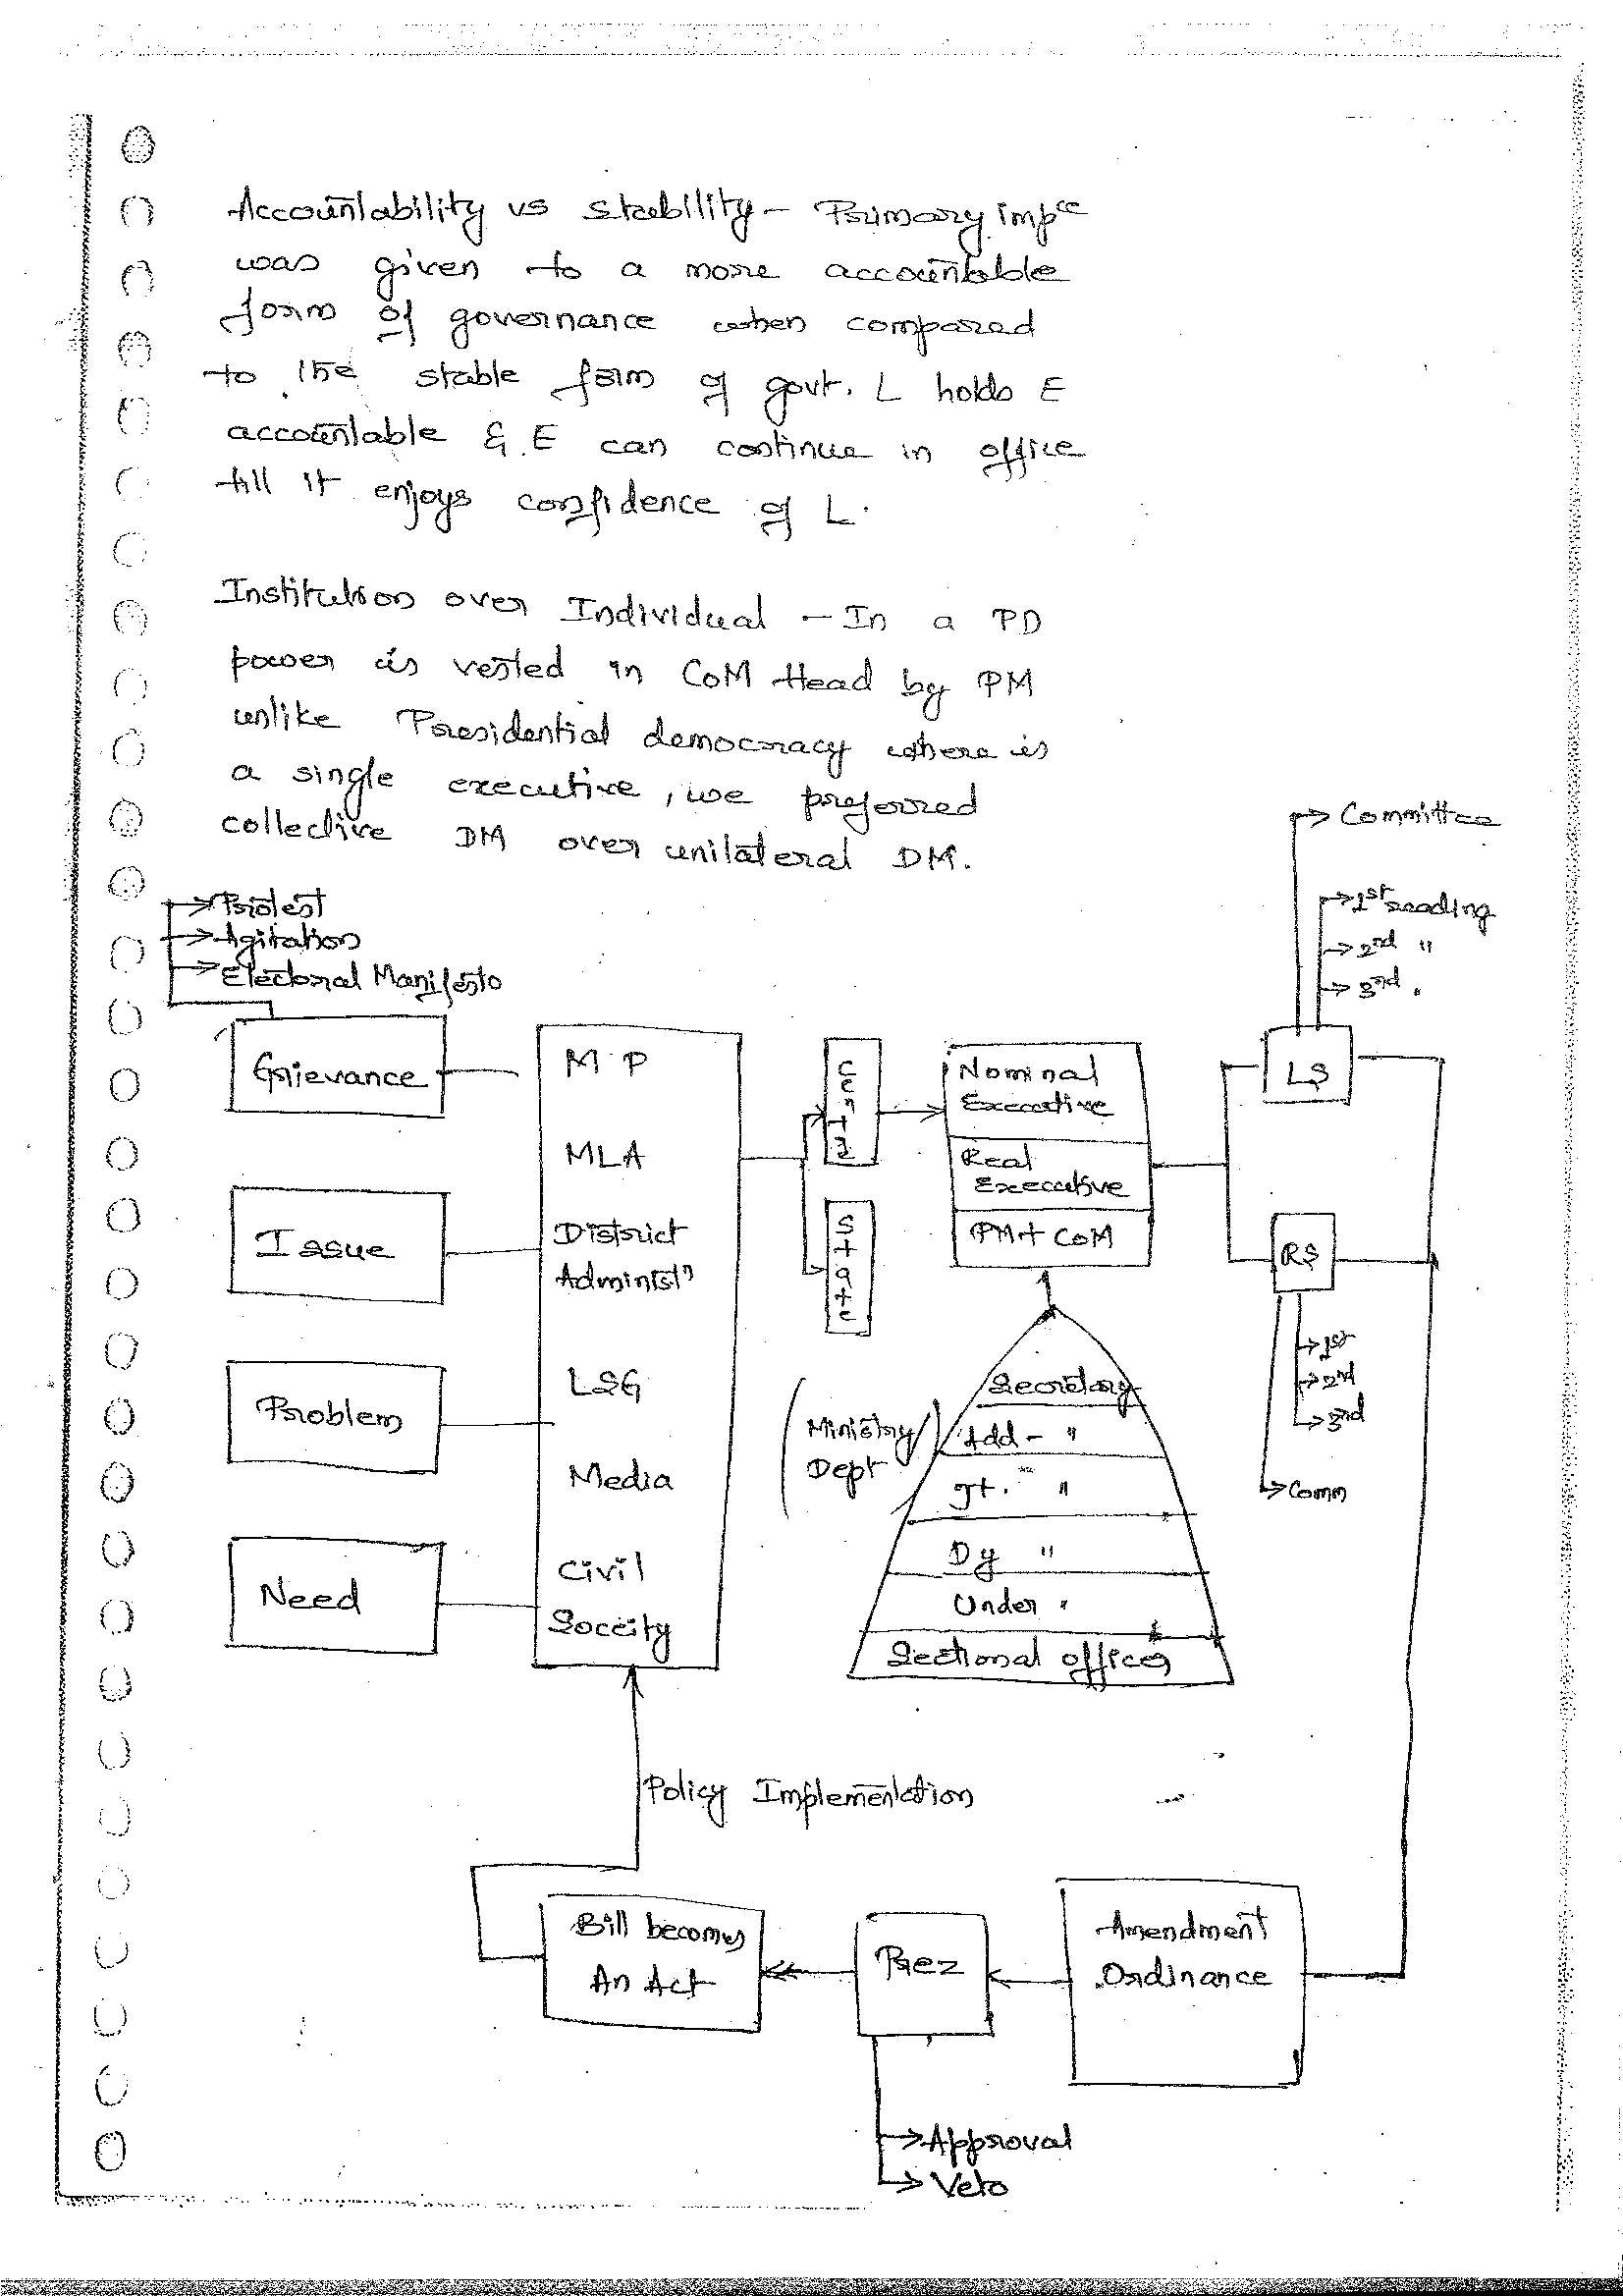 Accountability vs Stability - Primary impce
was given to a more accountable
form of governance when compared
to the stable form of govt. L holds E
accountable & E can continue in office
till it enjoys confidence of L.
Institution over Individual - In a PD
power is vested in CoM Head by PM
unlike Presidential democracy where is
a single executive, we preferred
collective DM over unilateral DM.
→ Protest
→ Agitation
→ Electoral Manifesto
Grievance
Issue
Problem
Need
M.P
MLA
District
Administn
LSG
Media
Civil
Soceity
Centre
State
Nominal
Executive
Real
Executive
PM + CoM
Secretary
Add - "
Jt. - "
Dy "
Under "
Sectional officer
(Ministry/
Dept)
→ Committee
→ 1st reading
→ 2nd "
→ 3rd "
LS
RS
→ 1st
→ 2nd
→ 3rd
→ Comm
Policy Implementation
Bill becomes
An Act
Prez
Amendment
Ordinance
→ Approval
→ Veto